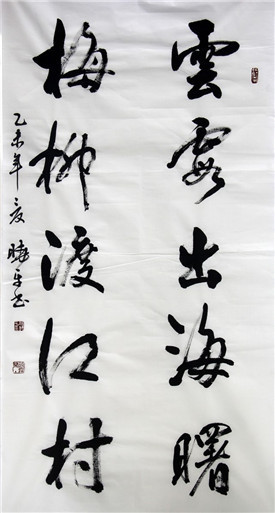 雲霞出海曙
梅柳渡江村
乙未年之夏